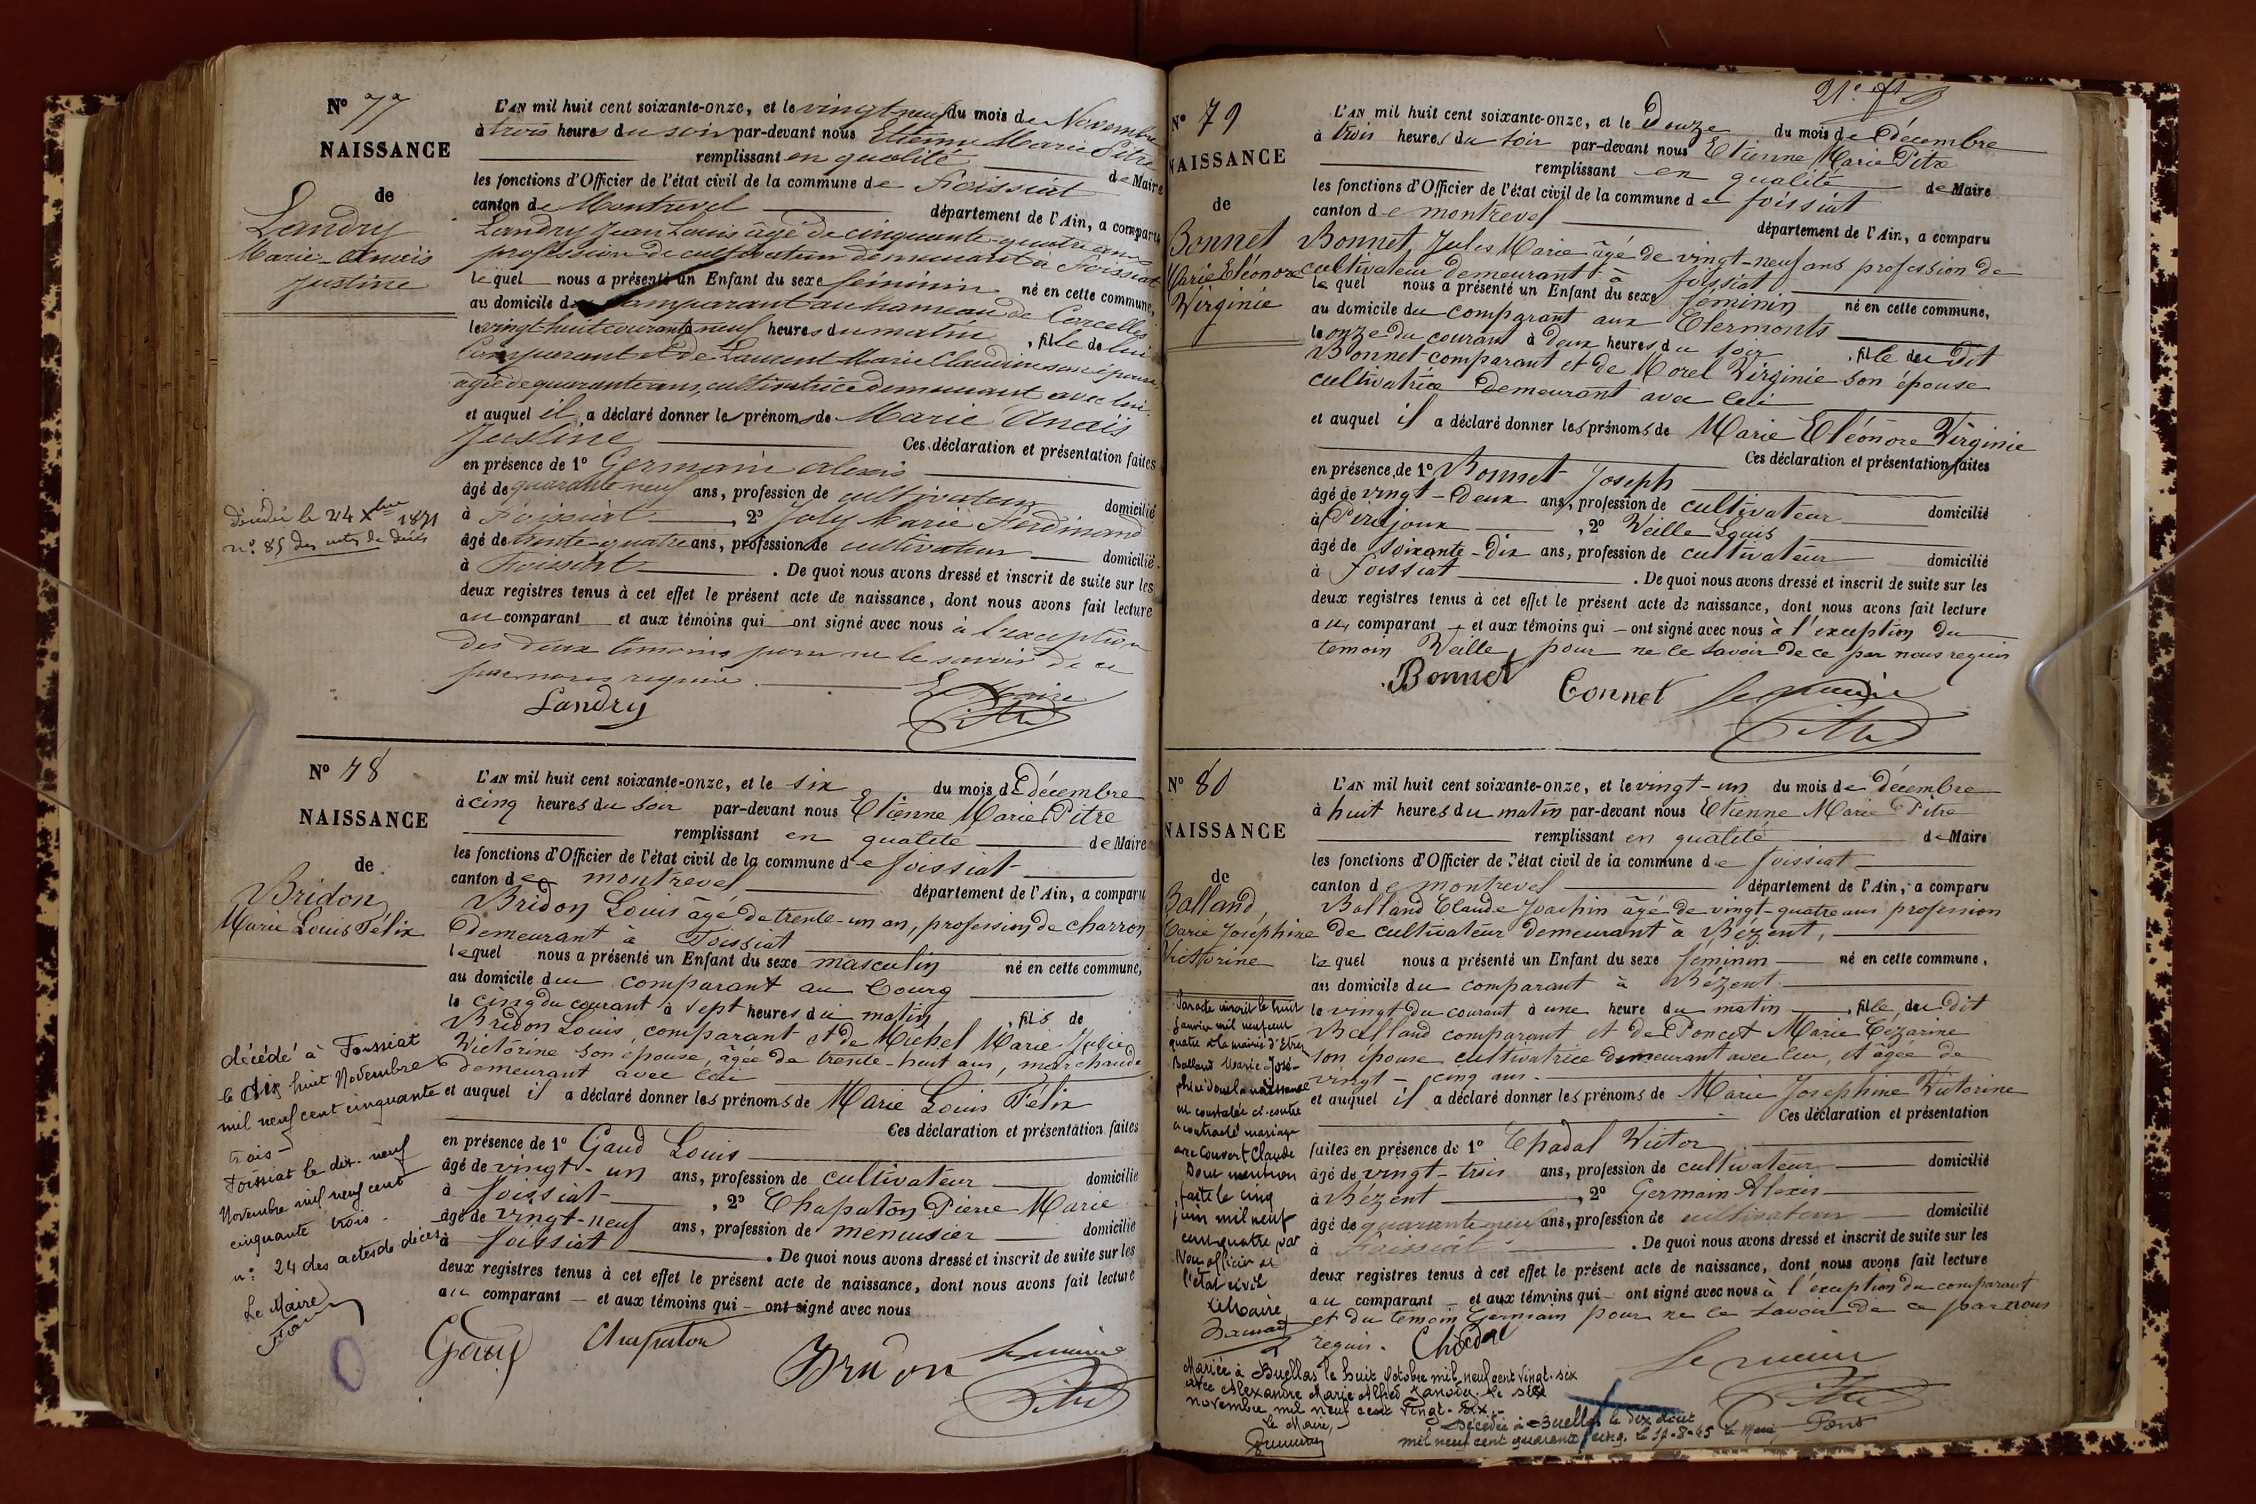 N° 77
NAISSANCE
de
Landry
Marie-Anaïs
Justine
décédée le 24 Xbre 1871
n° 85 des actes de décès
L'AN mil huit cent soixante-onze, et le vingt neuf du mois de Novembre
à trois heures du soir par-devant nous Etienne Marie Pitre
remplissant en qualité de Maire
les fonctions d'Officier de l'état civil de la commune de Foissiat
canton de Montrevel département de l'Ain, a comparu
Landry Jean Louis âgé de cinquante-quatre ans
profession de cultivateur demeurant à Foissiat
lequel nous a présenté un Enfant du sexe féminin né en cette commune,
au domicile du comparant au hameau de Corcelles
le vingt-huit courant à neuf heures du matin, fille de lui
comparant et de Laurent Marie Claudine son épouse
âgée de quarante ans, cultivatrice demeurant avec lui
et auquel il a déclaré donner les prénoms de Marie Anaïs
Justine Ces déclaration et présentation faites
en présence de 1° Germain Alexis
âgé de quarante-neuf ans, profession de cultivateur domicilié
à Foissiat, 2° Joly Marie Ferdinand
âgé de trente-quatre ans, profession de cultivateur domicilié
à Foissiat. De quoi nous avons dressé et inscrit de suite sur les
deux registres tenus à cet effet le présent acte de naissance, dont nous avons fait lecture
au comparant et aux témoins qui ont signé avec nous à l'exception
des deux témoins pour ne le savoir de ce
par nous requis
Le Maire
Landry Pitre
N° 78
NAISSANCE
de
Bridon
Marie Louis Félix
décédé à Foissiat
le dix huit Novembre
mil neuf cent cinquante
trois -
Foissiat le dix-neuf
Novembre mil neuf cent
cinquante trois -
n° 24 des actes de décès
Le Maire
L'AN mil huit cent soixante-onze, et le six du mois de décembre
à cinq heures du soir par-devant nous Etienne Marie Pitre
remplissant en qualité de Maire
les fonctions d'Officier de l'état civil de la commune de foissiat
canton de montrevel département de l'Ain, a comparu
Bridon Louis âgé de trente-un an, profession de charron
demeurant à Foissiat
lequel nous a présenté un Enfant du sexe masculin né en cette commune,
au domicile du comparant au bourg
le cinq du courant à sept heures du matin, fils de
Bridon Louis, comparant et de Michel Marie Julie
Victorine son épouse, âgée de trente-huit ans, marchande
demeurant avec lui
et auquel il a déclaré donner les prénoms de Marie Louis Félix
Ces déclaration et présentation faites
en présence de 1° Gaud Louis
âgé de vingt-un ans, profession de cultivateur domicilié
à foissiat, 2° Chapaton Pierre Marie
âgé de vingt-neuf ans, profession de menuisier domicilié
à foissiat. De quoi nous avons dressé et inscrit de suite sur les
deux registres tenus à cet effet le présent acte de naissance, dont nous avons fait lecture
au comparant et aux témoins qui ont signé avec nous
Gaud Chapaton Bridon le maire
Pitre
21e
N° 79
NAISSANCE
de
Bonnet
Marie Eléonore
Virginie
L'AN mil huit cent soixante-onze, et le Douze du mois de décembre
à trois heures du soir par-devant nous Etienne Marie Pitre
remplissant en qualité de Maire
les fonctions d'Officier de l'état civil de la commune de foissiat
canton de montrevel département de l'Ain, a comparu
Bonnet, Jules Marie âgé de vingt-neuf ans profession de
cultivateur demeurant à foissiat
lequel nous a présenté un Enfant du sexe féminin né en cette commune,
au domicile du comparant aux Clermonts
le onze du courant à deux heures du soir, fille du dit
Bonnet comparant et de Morel Virginie son épouse
cultivatrice demeurant avec lui
et auquel il a déclaré donner les prénoms de Marie Eléonore Virginie
Ces déclaration et présentation faites
en présence de 1° Bonnet Joseph
âgé de vingt-deux ans, profession de cultivateur domicilié
à Perejoux, 2° Veille Louis
âgé de soixante-dix ans, profession de cultivateur domicilié
à foissiat. De quoi nous avons dressé et inscrit de suite sur les
deux registres tenus à cet effet le présent acte de naissance, dont nous avons fait lecture
au comparant et aux témoins qui ont signé avec nous à l'exception du
temoin Veille, pour ne le savoir de ce par nous requis
Bonnet Bonnet le maire
Pitre
N° 80
NAISSANCE
de
Balland
Marie Joséphine
Victorine
Par acte inscrit le huit
Janvier mil neuf cent
quatre à la mairie d'Etrez
Balland Marie José-
phine dont la naissance
est constatée ci-contre
a contracté mariage
avec Convert Claude
Dont mention
faite le cinq
juin mil neuf
cent quatre par
Nous officier de
l'état civil
Le Maire
L'AN mil huit cent soixante-onze, et le vingt-un du mois de décembre
à huit heures du matin par-devant nous Etienne Marie Pitre
remplissant en qualité de Maire
les fonctions d'Officier de l'état civil de la commune de foissiat
canton de montrevel département de l'Ain, a comparu
Balland Claude Joachin âgé de vingt-quatre ans profession
de cultivateur demeurant à Bézent,
lequel nous a présenté un Enfant du sexe féminin né en cette commune,
au domicile du comparant à Bézent
le vingt du courant à une heure du matin, fille du dit
Balland comparant et de Poncet Marie Cézarine
son épouse cultivatrice demeurant avec lui, et âgée de
vingt-cinq ans.
et auquel il a déclaré donner les prénoms de Marie Joséphine Victorine
Ces déclaration et présentation
faites en présence de 1° Chadal Victor
âgé de vingt-trois ans, profession de cultivateur domicilié
à Bézent, 2° Germain Alexis
âgé de quarante neuf ans, profession de cultivateur domicilié
à Foissiat. De quoi nous avons dressé et inscrit de suite sur les
deux registres tenus à cet effet le présent acte de naissance, dont nous avons fait lecture
au comparant et aux témoins qui ont signé avec nous à l'exception du comparant
et du temoin Germain pour ne le savoir de ce par nous
requis. Chadal
le maire
Pitre
Mariée à Buellas le huit Octobre mil neuf cent vingt-six
avec Alexandre Marie Alfred. Le six
novembre mil neuf cent vingt-six.-
Le Maire,
Décédée à Buellas le dix Août
mil neuf cent quarante cinq. Le 17-8-45 Le Maire,